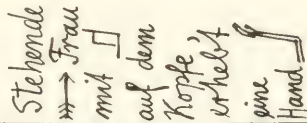 Stehende
Frau
mit
auf dem
Kopfe,
erhebt
eine
Hand